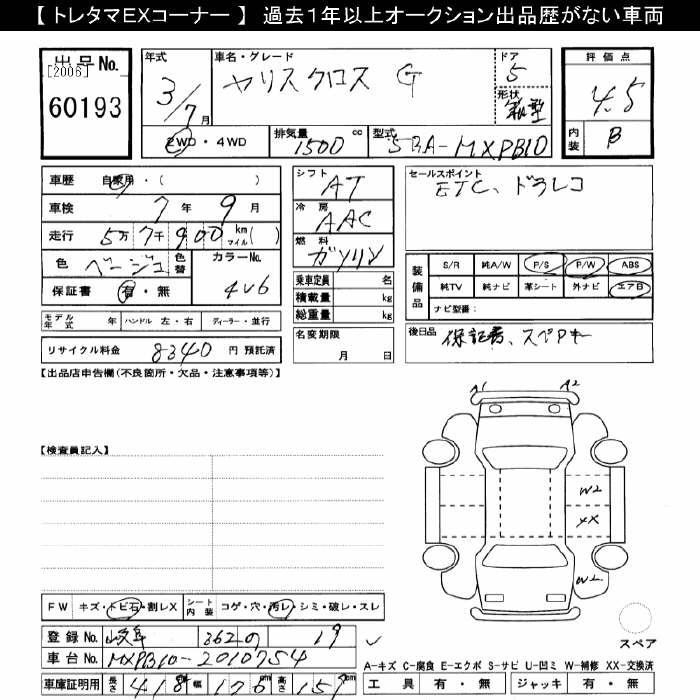 【 トレタマEXコーナー 】 過去1年以上オークション出品歴がない車両
出品No. [2006] 60193
年式 3/7月
車名・グレード ヤリスクロス G
ドア 5
形状 箱型
評価点 4.5
内装 B
2WD・4WD 排気量 1500 cc 型式 5BA-MXPB10
車歴 自家用・( )
車検 7年 9月
走行 5万 7千 900 km マイル( )
色 ベージュ 色替 カラーNo. 4V6
保証書 有・無
シフト AT
冷房 AAC
燃料 ガソリン
乗車定員 名
積載量 kg
総重量 kg
セールスポイント
ETC、ドラレコ
装備品 S/R 純A/W P/S P/W ABS
純TV 純ナビ 革シート 外ナビ エアB
ナビ型番:
モデル年式 年 ハンドル 左・右 ディーラー・並行
リサイクル料金 8340 円 預託済
名変期限 月 日
後日品 保証書、スペアキー
【出品店申告欄(不良箇所・欠品・注意事項等)】
A1 A2
【検査員記入】
W2
XX
W2
FW キズ・トビ石・割レX シート内装 コゲ・穴・汚レ・シミ・破レ・スレ
登録No. 岐阜 362 の 19
車台No. MXPB10-2010754
スペア
A-キズ C-腐食 E-エクボ S-サビ U-凹ミ W-補修 XX-交換済
車庫証明用 長さ 418 cm 幅 176 cm 高さ 157 cm
工具 有・無 ジャッキ 有・無